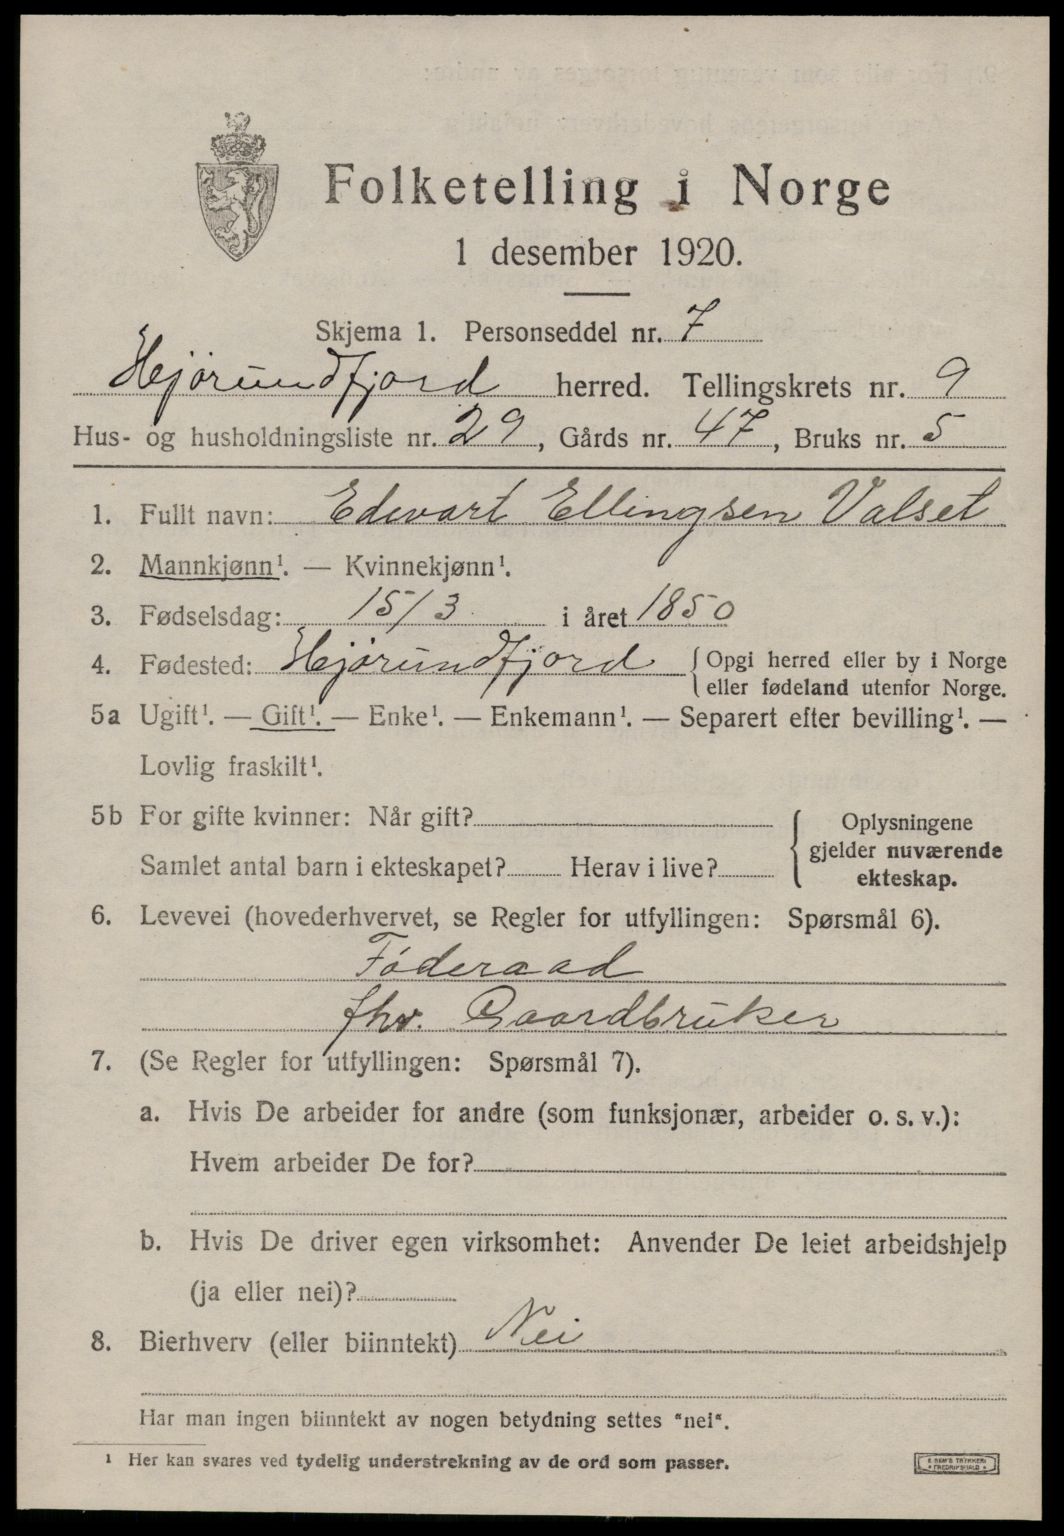 Folketelling i Norge
1 desember 1920.
Skjema 1. Personseddel nr. 7
Hjørundfjord herred. Tellingskrets nr. 9
Hus- og husholdningsliste nr. 29, Gårds nr. 47, Bruks nr. 5
1. Fullt navn: Edvart Ellingsen Valset
2. Mannkjønn¹. — Kvinnekjønn¹.
3. Fødselsdag: 15/3 i året 1850
4. Fødested: Hjørundfjord { Opgi herred eller by i Norge
eller fødeland utenfor Norge.
5a Ugift¹. — Gift¹. — Enke¹. — Enkemann¹. — Separert efter bevilling¹. —
Lovlig fraskilt¹.
5b For gifte kvinner: Når gift?
Samlet antal barn i ekteskapet? Herav i live?
{ Oplysningene
gjelder nuværende
ekteskap.
6. Levevei (hovederhvervet, se Regler for utfyllingen: Spørsmål 6).
Føderaad
fhv. Gaardbruker
7. (Se Regler for utfyllingen: Spørsmål 7).
a. Hvis De arbeider for andre (som funksjonær, arbeider o. s. v.):
Hvem arbeider De for?
b. Hvis De driver egen virksomhet: Anvender De leiet arbeidshjelp
(ja eller nei)?
8. Bierhverv (eller biinntekt) Nei
Har man ingen biinntekt av nogen betydning settes "nei".
¹ Her kan svares ved tydelig understrekning av de ord som passer.